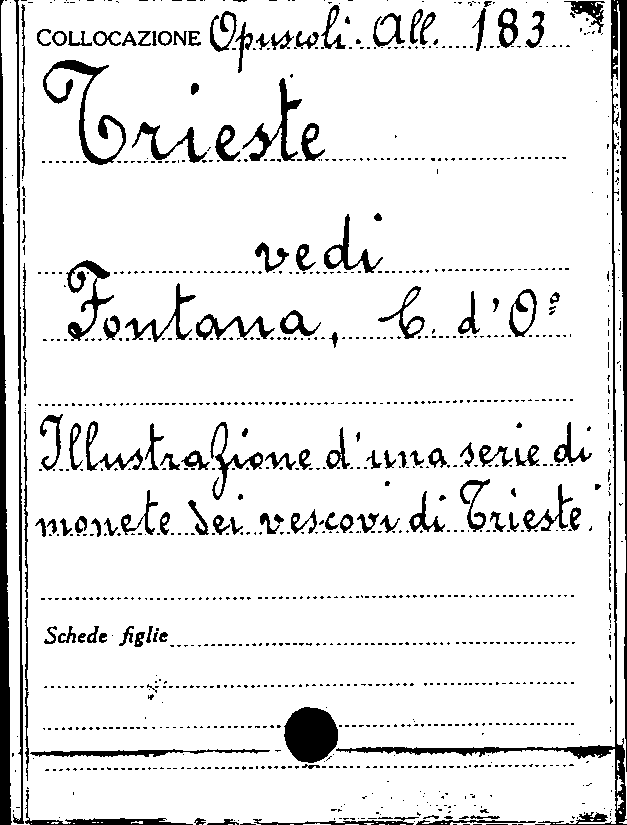 COLLOCAZIONE Opuscoli. All. 183
Trieste
vedi
Fontana, C. d'Oº
Illustrazione d'una serie di
monete dei vescovi di Trieste.
Schede figlie